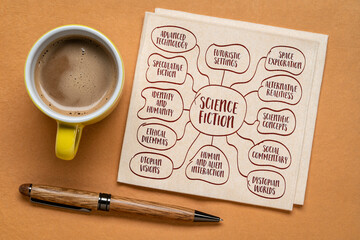 ADVANCED
TECHNOLOGY
FUTURISTIC
SETTINGS
SPACE
EXPLORATION
SPECULATIVE
FICTION
ALTERNATIVE
REALITIES
IDENTITY AND
HUMANITY
SCIENCE
FICTION
SCIENTIFIC
CONCEPTS
ETHICAL
DILEMMAS
SOCIAL
COMMENTARY
UTOPIAN
VISIONS
HUMAN
AND ALIEN
INTERACTION
DYSTOPIAN
WORLDS